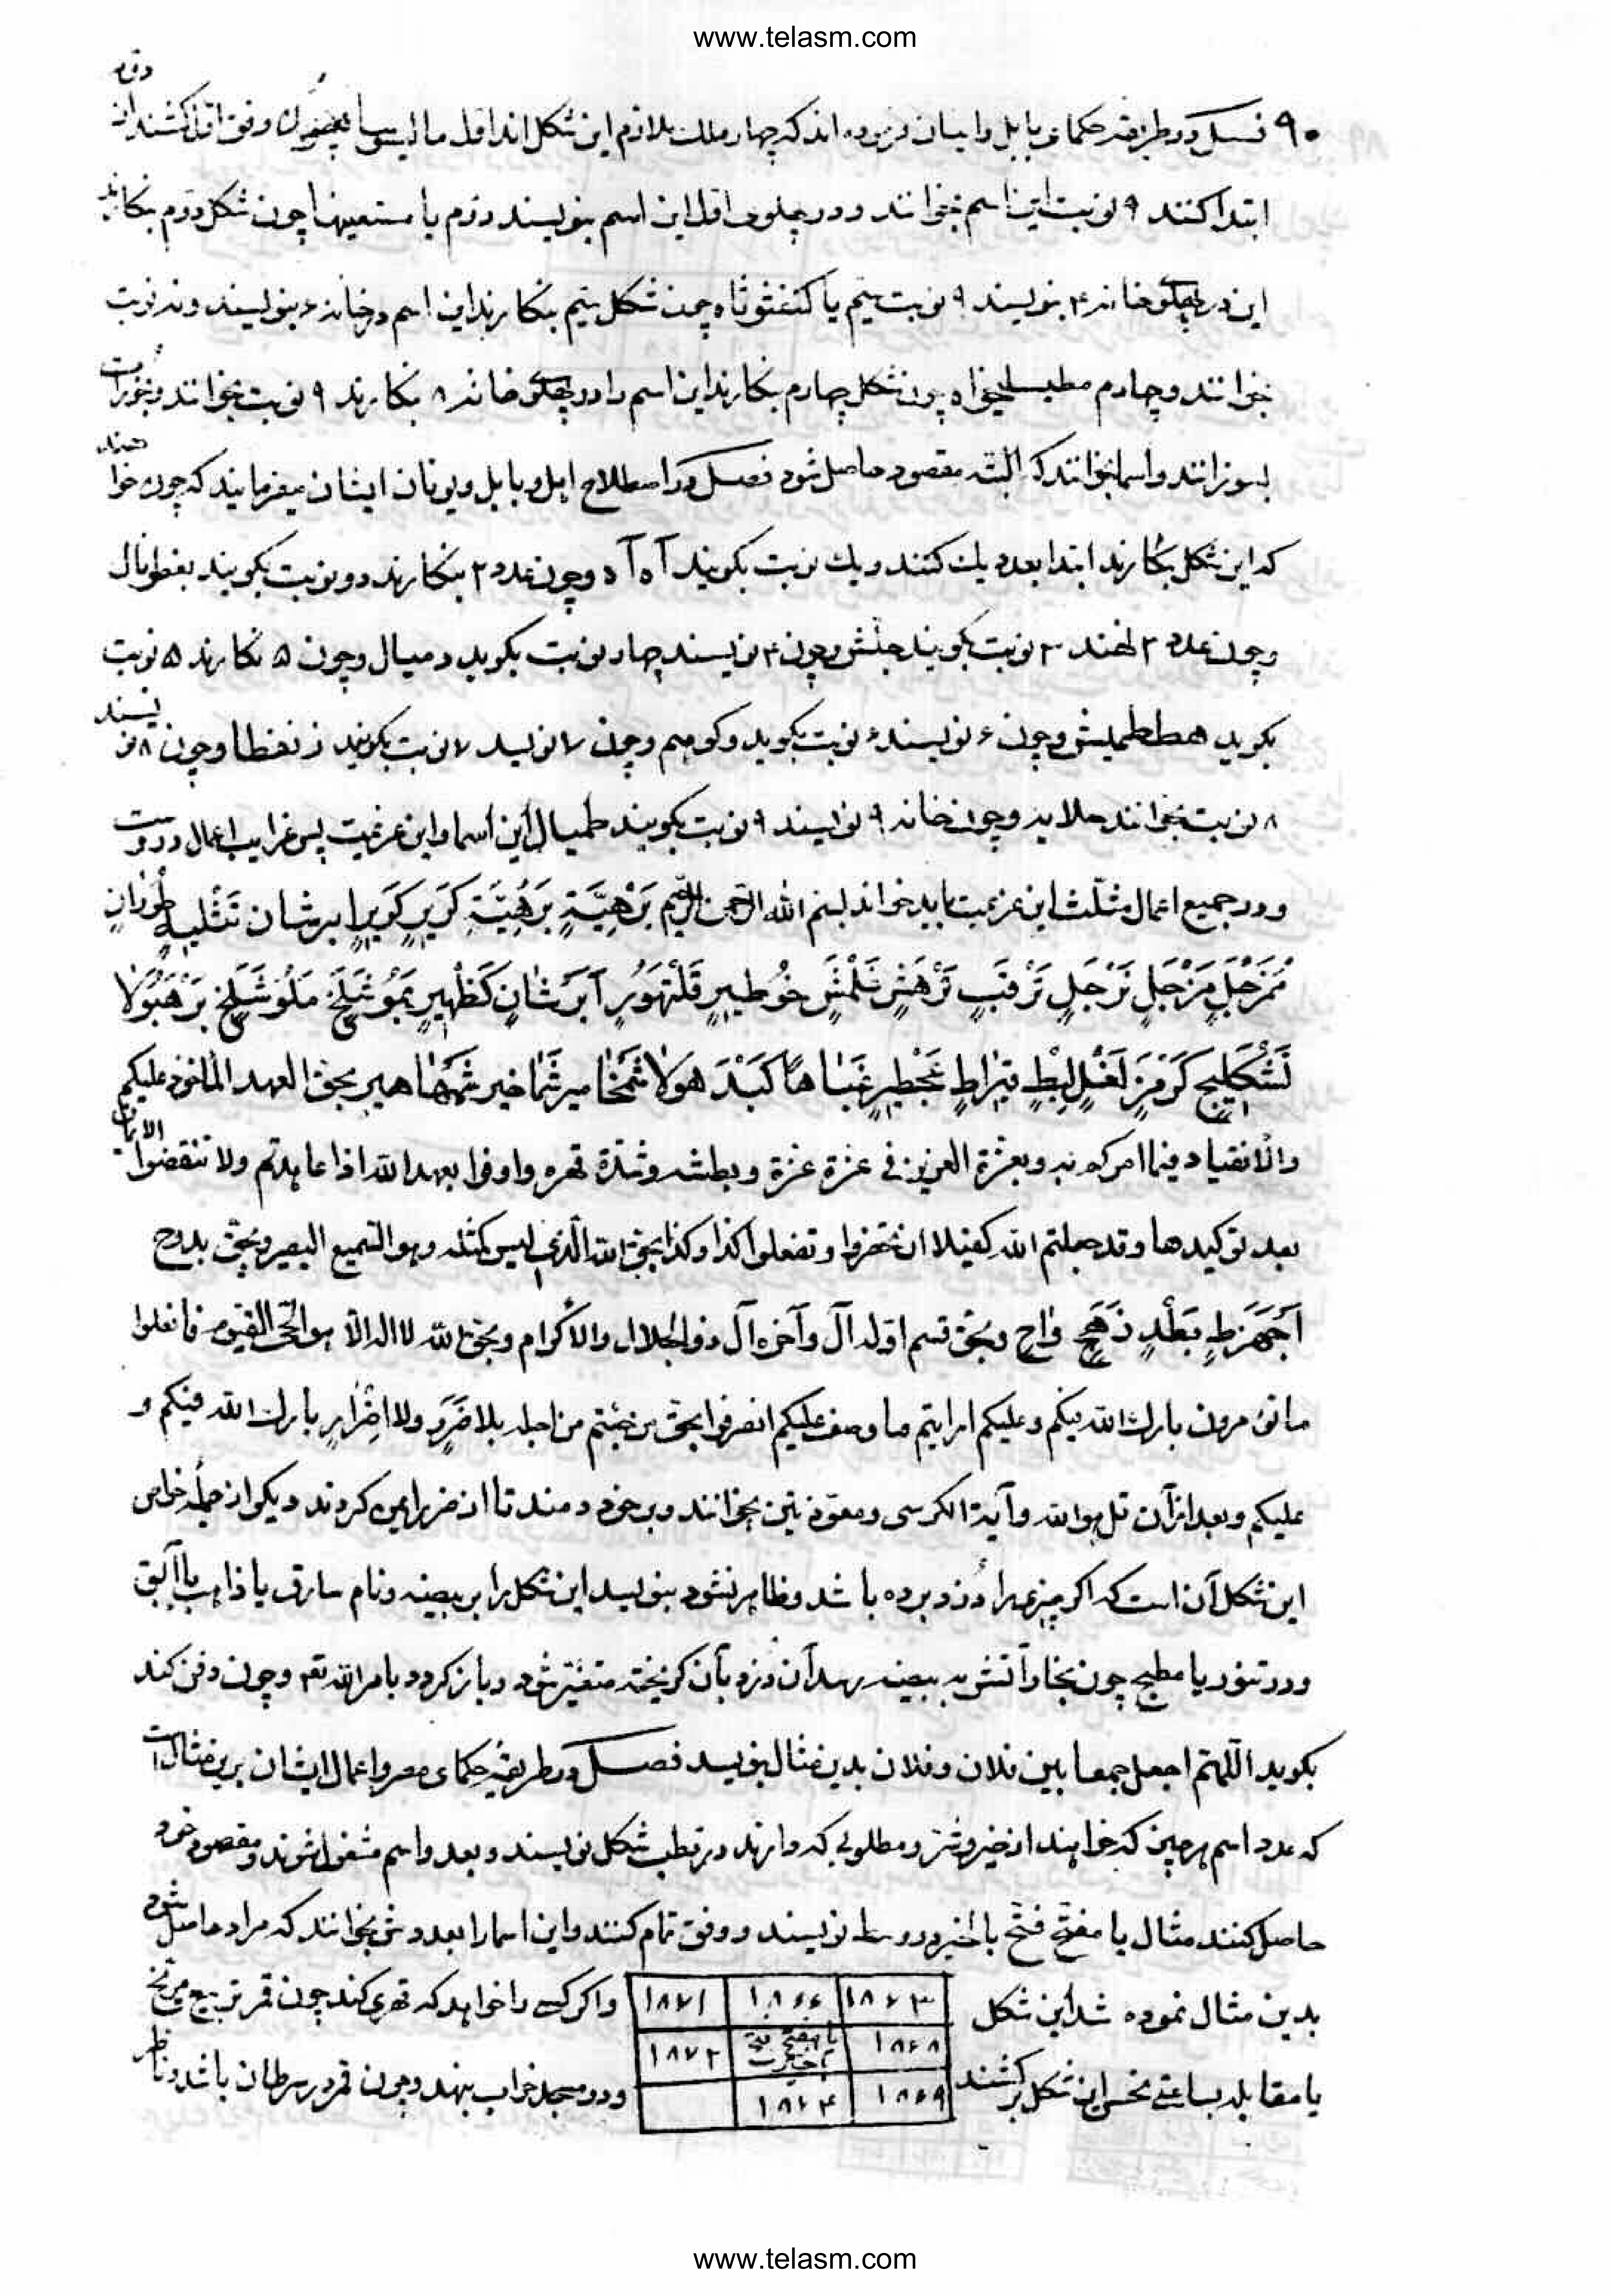 www.telasm.com
۹۰ فصل در طریقه حکمای بابل را بیان فرموده اند که چهار ملک ملازم این شکل اند اول مالیوسا وفق اول کشند از
ابتدا کنند ۹ نوبت این اسم بخوانند و در پهلوی اول این اسم بنویسند دوم یا مستعینها چون شکل دوم بنکارند
این در پهلوی خانه ۴ بنویسند ۹ نوبت سیم یا چون شکل سیم بنکارند این اسم در خانه ۶ بنویسند و نه نوبت
بخوانند و چهارم چون شکل چهارم بنکارند این اسم را در پهلوی خانه ۸ بنکارند ۹ نوبت بخوانند و بخورات
بسوزانند و اسما بخوانند که البته مقصود حاصل شود فصل در اصطلاح اهل بابل و یونان ایشان میفرمایند که چون خواهند
که این شکل بنکارند ابتدا بعدد یک کنند و یک نوبت بکویند آه آه و چون عدد ۲ بنکارند دو نوبت بکویند بغطوانال
و چون عدد ۳ نهند ۳ نوبت بکویند جلش و چون ۴ نویسند چهار نوبت بکوید دمیال و چون ۵ نکارند ۵ نوبت
بکوید هططمیش و چون ۶ نویسند ۶ نوبت بکوید وکومیم و چون ۷ نویسد ۷ نوبت بکویند زنغطا و چون ۸ نویسند
۸ نوبت بخوانند حلاید و چون خانه ۹ نویسند ۹ نوبت بکویند طمیال این اسما و این عزیمت پس غرایب اعمال دروست
و در جمیع اعمال مثلث این عزیمت باید خواند بسم الله الرحمن الرحیم بَرْهِیَّةٍ بَرْهِیَّةٍ کَرِیرٍ کَرِیرٍ ابرشان تَتْلِیهٍ طُوْرَانٍ
مَزْجَلٍ مَزْجَلٍ تَرْجَلٍ تَرْقَبٍ تَرْهَشٍ غَلْمَشٍ خُوطِیرٍ قَلْنَهُورٍ آبَرْشَانٍ کَظْهِیرٍ نَمُوْشَلَخٍ مَلُوْشَلَخٍ بَرْهَیُولا
بَشْکَیْلَخٍ کَرْمَزٍ لَغَلِیطٍ قِبَرَاطٍ غَیَاهَا کَیْدَ هَولا شَمَخَا میر شَمَا خیر شَمَهَا هیر بحق العهد المأخوذ علیکم
والانقیاد فیما امرکم به وبعزة العزیز فی عزة عزة وبطشه وشدة قهره واوفوا بعهد الله اذا عاهدتم ولا تنقضوا الایمان
بعد توکیدها وقد جعلتم الله کفیلا ان وتفعلوا کذا وکذا بحق الله الذی لیس کمثله وهو السمیع البصیر وبحق بدوح
اَجَهَزَطٍ بَطَدٍ زَهَجٍ وَاحٍ وبحق قسم اوله آل وآخره آل ذوالجلال والاکرام وبحق الله لا اله الا هو الحی القیوم فافعلوا
ما تؤمرون بارک الله فیکم وعلیکم انصرفوا بحق من جئتم من اجله بلا ضَرَرٍ ولا اِضْرَارٍ بارک الله فیکم و
علیکم و بعد از آن قل هو الله و آیة الکرسی و معوذتین بخوانند و بر خود دمند تا از ضرر ایمن کردند و یکی از جمله خواص
این شکل آن است که اکر چیزی را دزد برده باشد و ظاهر نشود بنویسد این شکل را بر بیضه و نام سارق یا ذاهب یا آبق
و در تنور یا مطبخ چون بخار آتش به بیضه رسد آن دزد یا آن کریخته متغیر شود و باز کردد بامر الله تعم و چون دفن کند
بکوید اللهم اجعل جمعا بین فلان و فلان بدین مثال بنویسد فصل در طریقه حکمای مصر و اعمال ایشان برین مثال است
که عدد اسم هر چیز که خواهند از خیر و شر و مطلوبی که دارند در قطب شکل نویسند و بعدد اسم مشغول شوند و مقصود خود
حاصل کنند مثال یا مفتح فتح بالخیر در وسط نویسند و وفق تمام کنند و این اسما را بعددش بخوانند که مراد حاصل شود
بدین مثال نموده شد این شکل
۱۸۷۳ ۱۸۶۶ ۱۸۷۱
۱۸۶۸ یا مفتح فتح ۱۸۷۲
۱۸۶۹ ۱۸۷۴
و اکر کسی را خواهد که قهر کند چون قمر تربیع مریخ
یا مقابله بساعتی نحس این شکل بر کشند
و در مسجد خراب نهند و چون قمر در سرطان باشد و ناظر
www.telasm.com